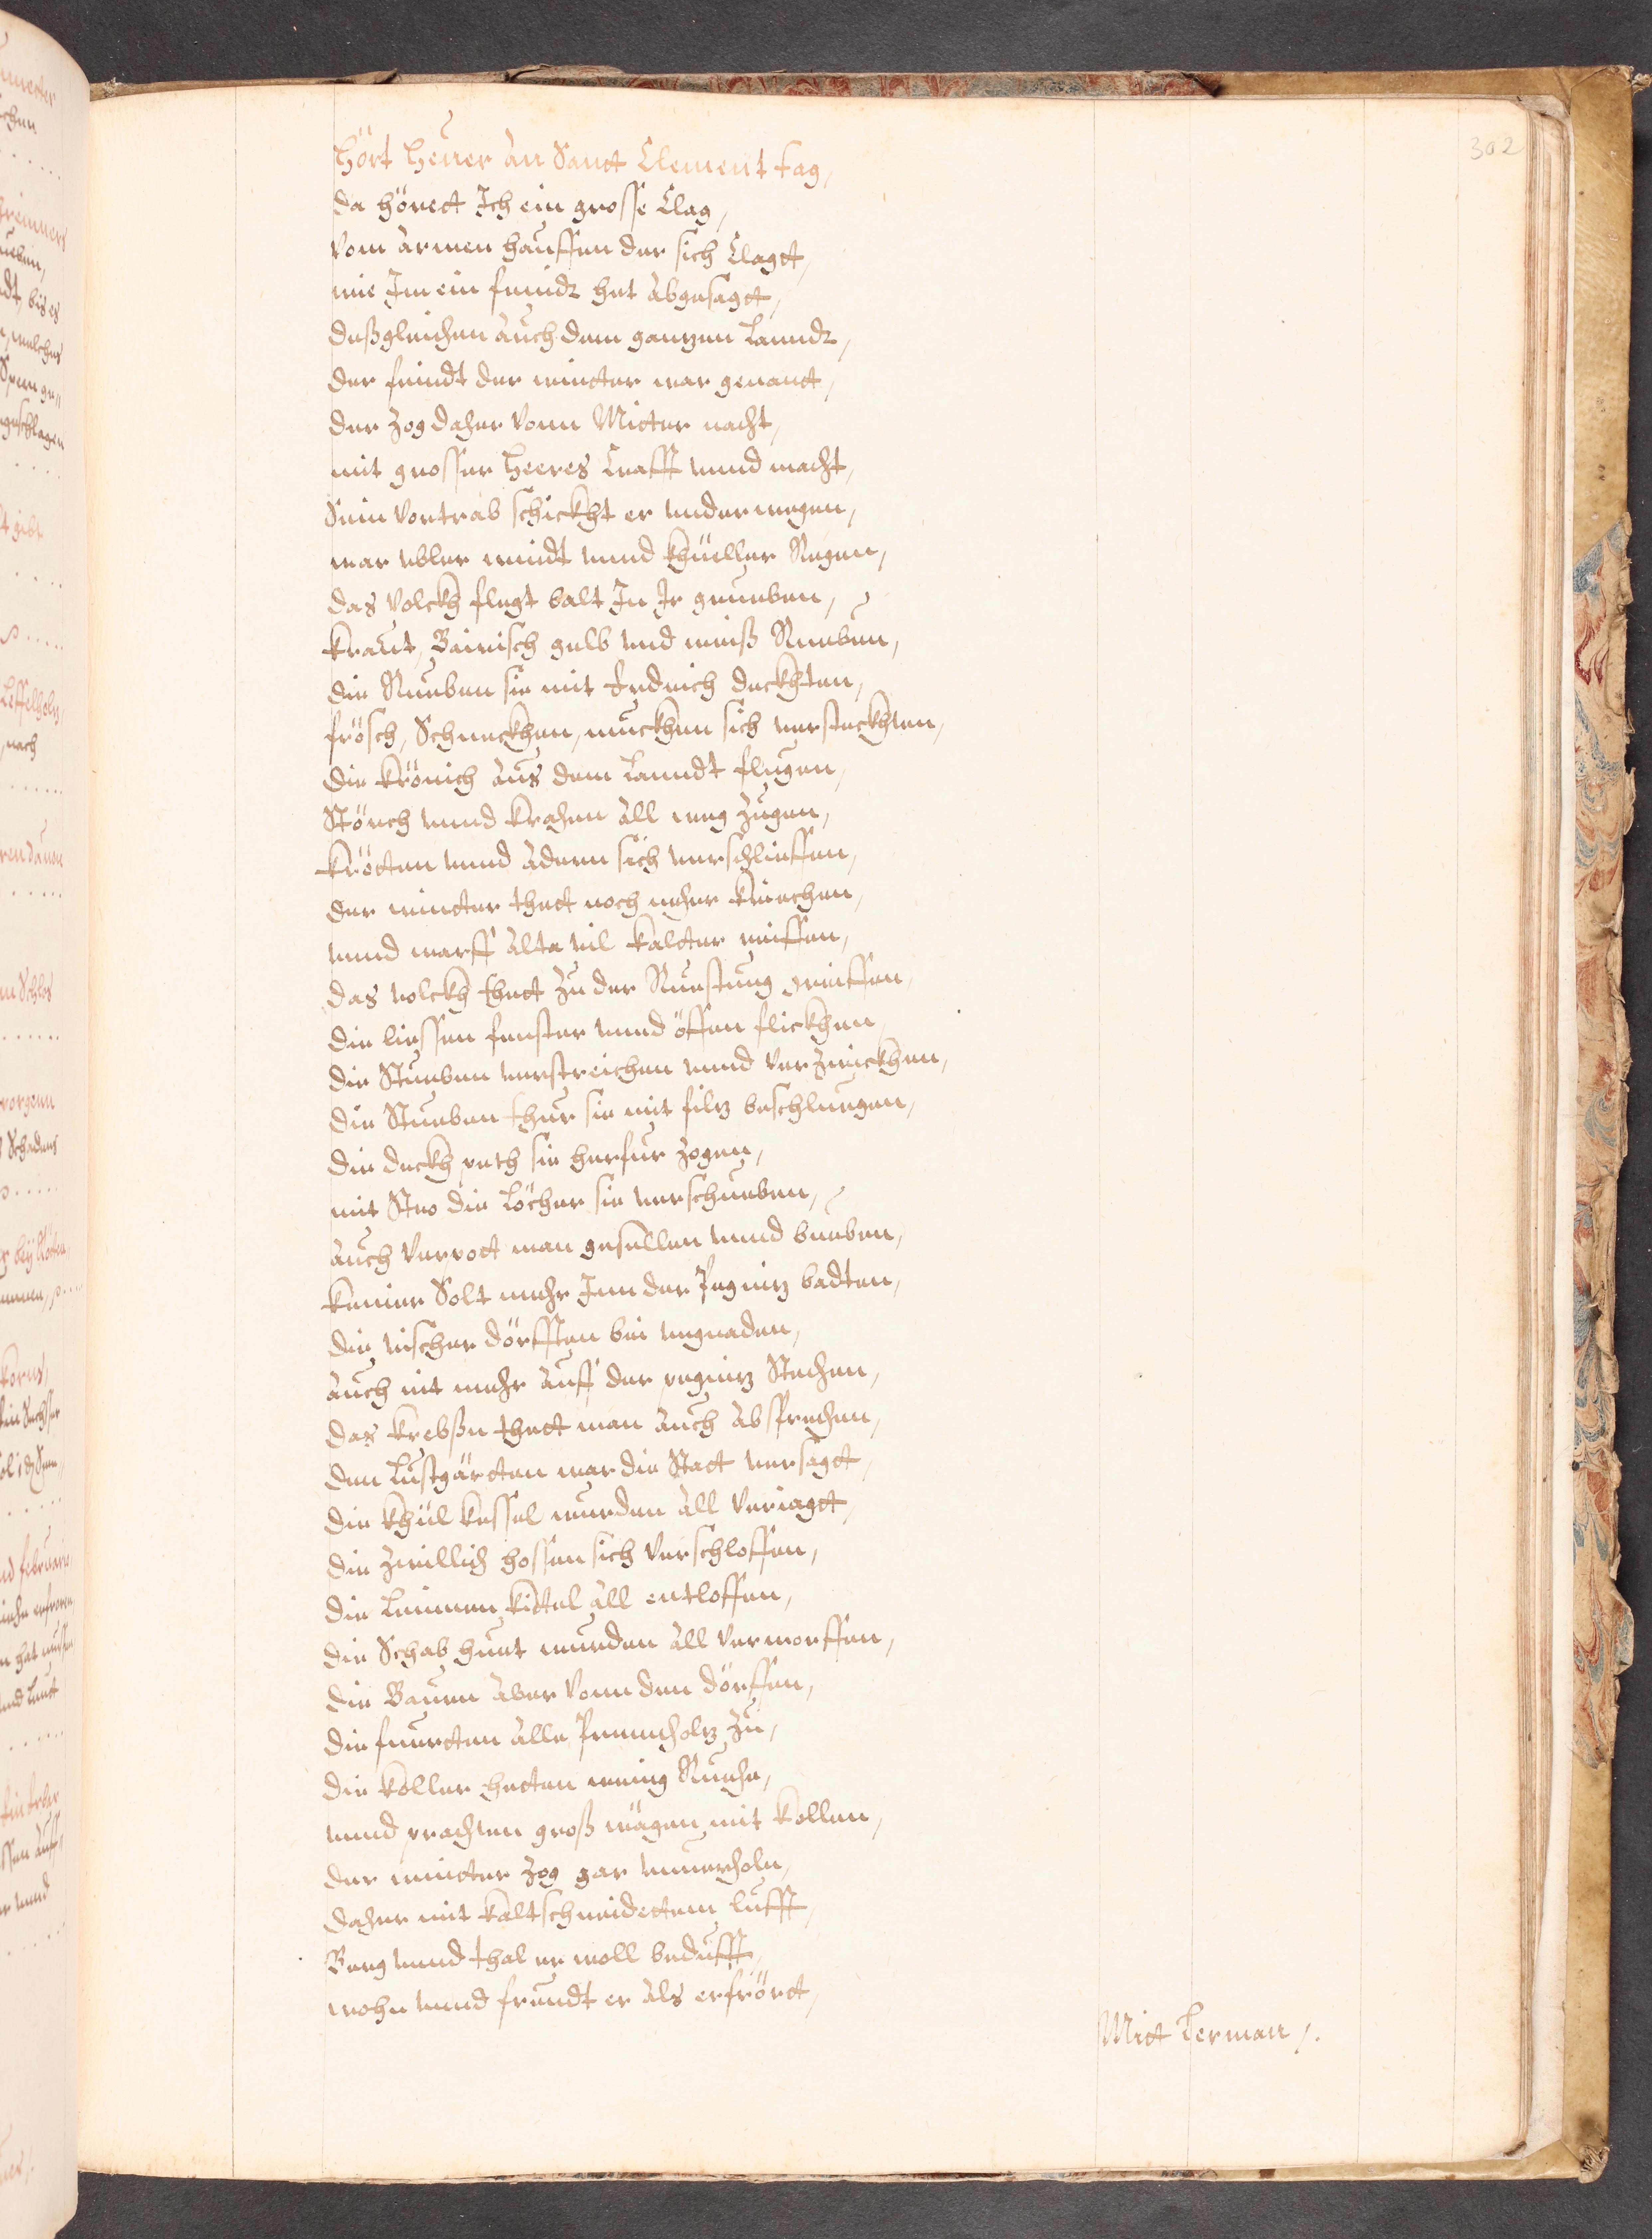 302
Hört Heuer an Sanct Clement tag,
da höret Ich ein grosse Clag,
Vom Armen hauffen der sich Clagtt,
wie Im ein feindt het Abgesagtt,
deßgleichen auch dem ganzen Lanndt,
der feindt der wintter war genantt,
der zog daher Vonn Mitter nacht,
mit grosser Heeres Crafft unnd macht,
Sein Vortrab schickht er underwegen,
war ubler windt unnd khüeller Regen,
das Volckh flegt balt In Ir grueben,
Kraut, Bairisch gelb und weiß Rueben,
die Rueben sie mit Erdreich deckhten,
frösch, Schneckhen, muckhen sich versteckhten,
die Krönich aus dem Lanndt flugen,
Störch unnd Krahen all weg zugen,
Krötten unnd Adern sich verschlieffen,
der wintter thett noch neher Kriechen,
unnd warff Alte vil kaltter reiffen,
das volckh thett zu der Ruestung greiffen,
die liessen fenster unnd öffen flickhen,
die Stueben verstreichen unnd Verzwickhen,
die Stueben thür sie mit filz beschluegen,
die deckh peth sie herfur zogen,
mit Stro die Löcher sie verschueben,
auch Verpott man gesellen unnd bueben,
Keiner Solt mehr Inn der Pegniz badten,
die vischer dörfften bei ungnaden,
auch nit mehr auff der pegniz Stechen,
das Krebßen thett man auch Absprechen,
den Lustgärtten war die Statt versagtt,
die khül Kessel wurden all Veriagtt,
die zwillich hossen sich Verschloffen,
die Leinnen kittel all entloffen,
die Schab huet wurden all Verworffen,
die Bauren Aber Vonn den dörffen,
die fuertten Alle Prennholz zu,
die Koller hetten wenig Ruehe,
unnd prachten groß wägen mit Kollen,
der wintter zog gar unnerholn,
daher mit kaltschneidettem lufft,
Berg unnd thal er woll bedufft,
wohn unnd freudt er als erfrörtt,
Mitt Lerman /.